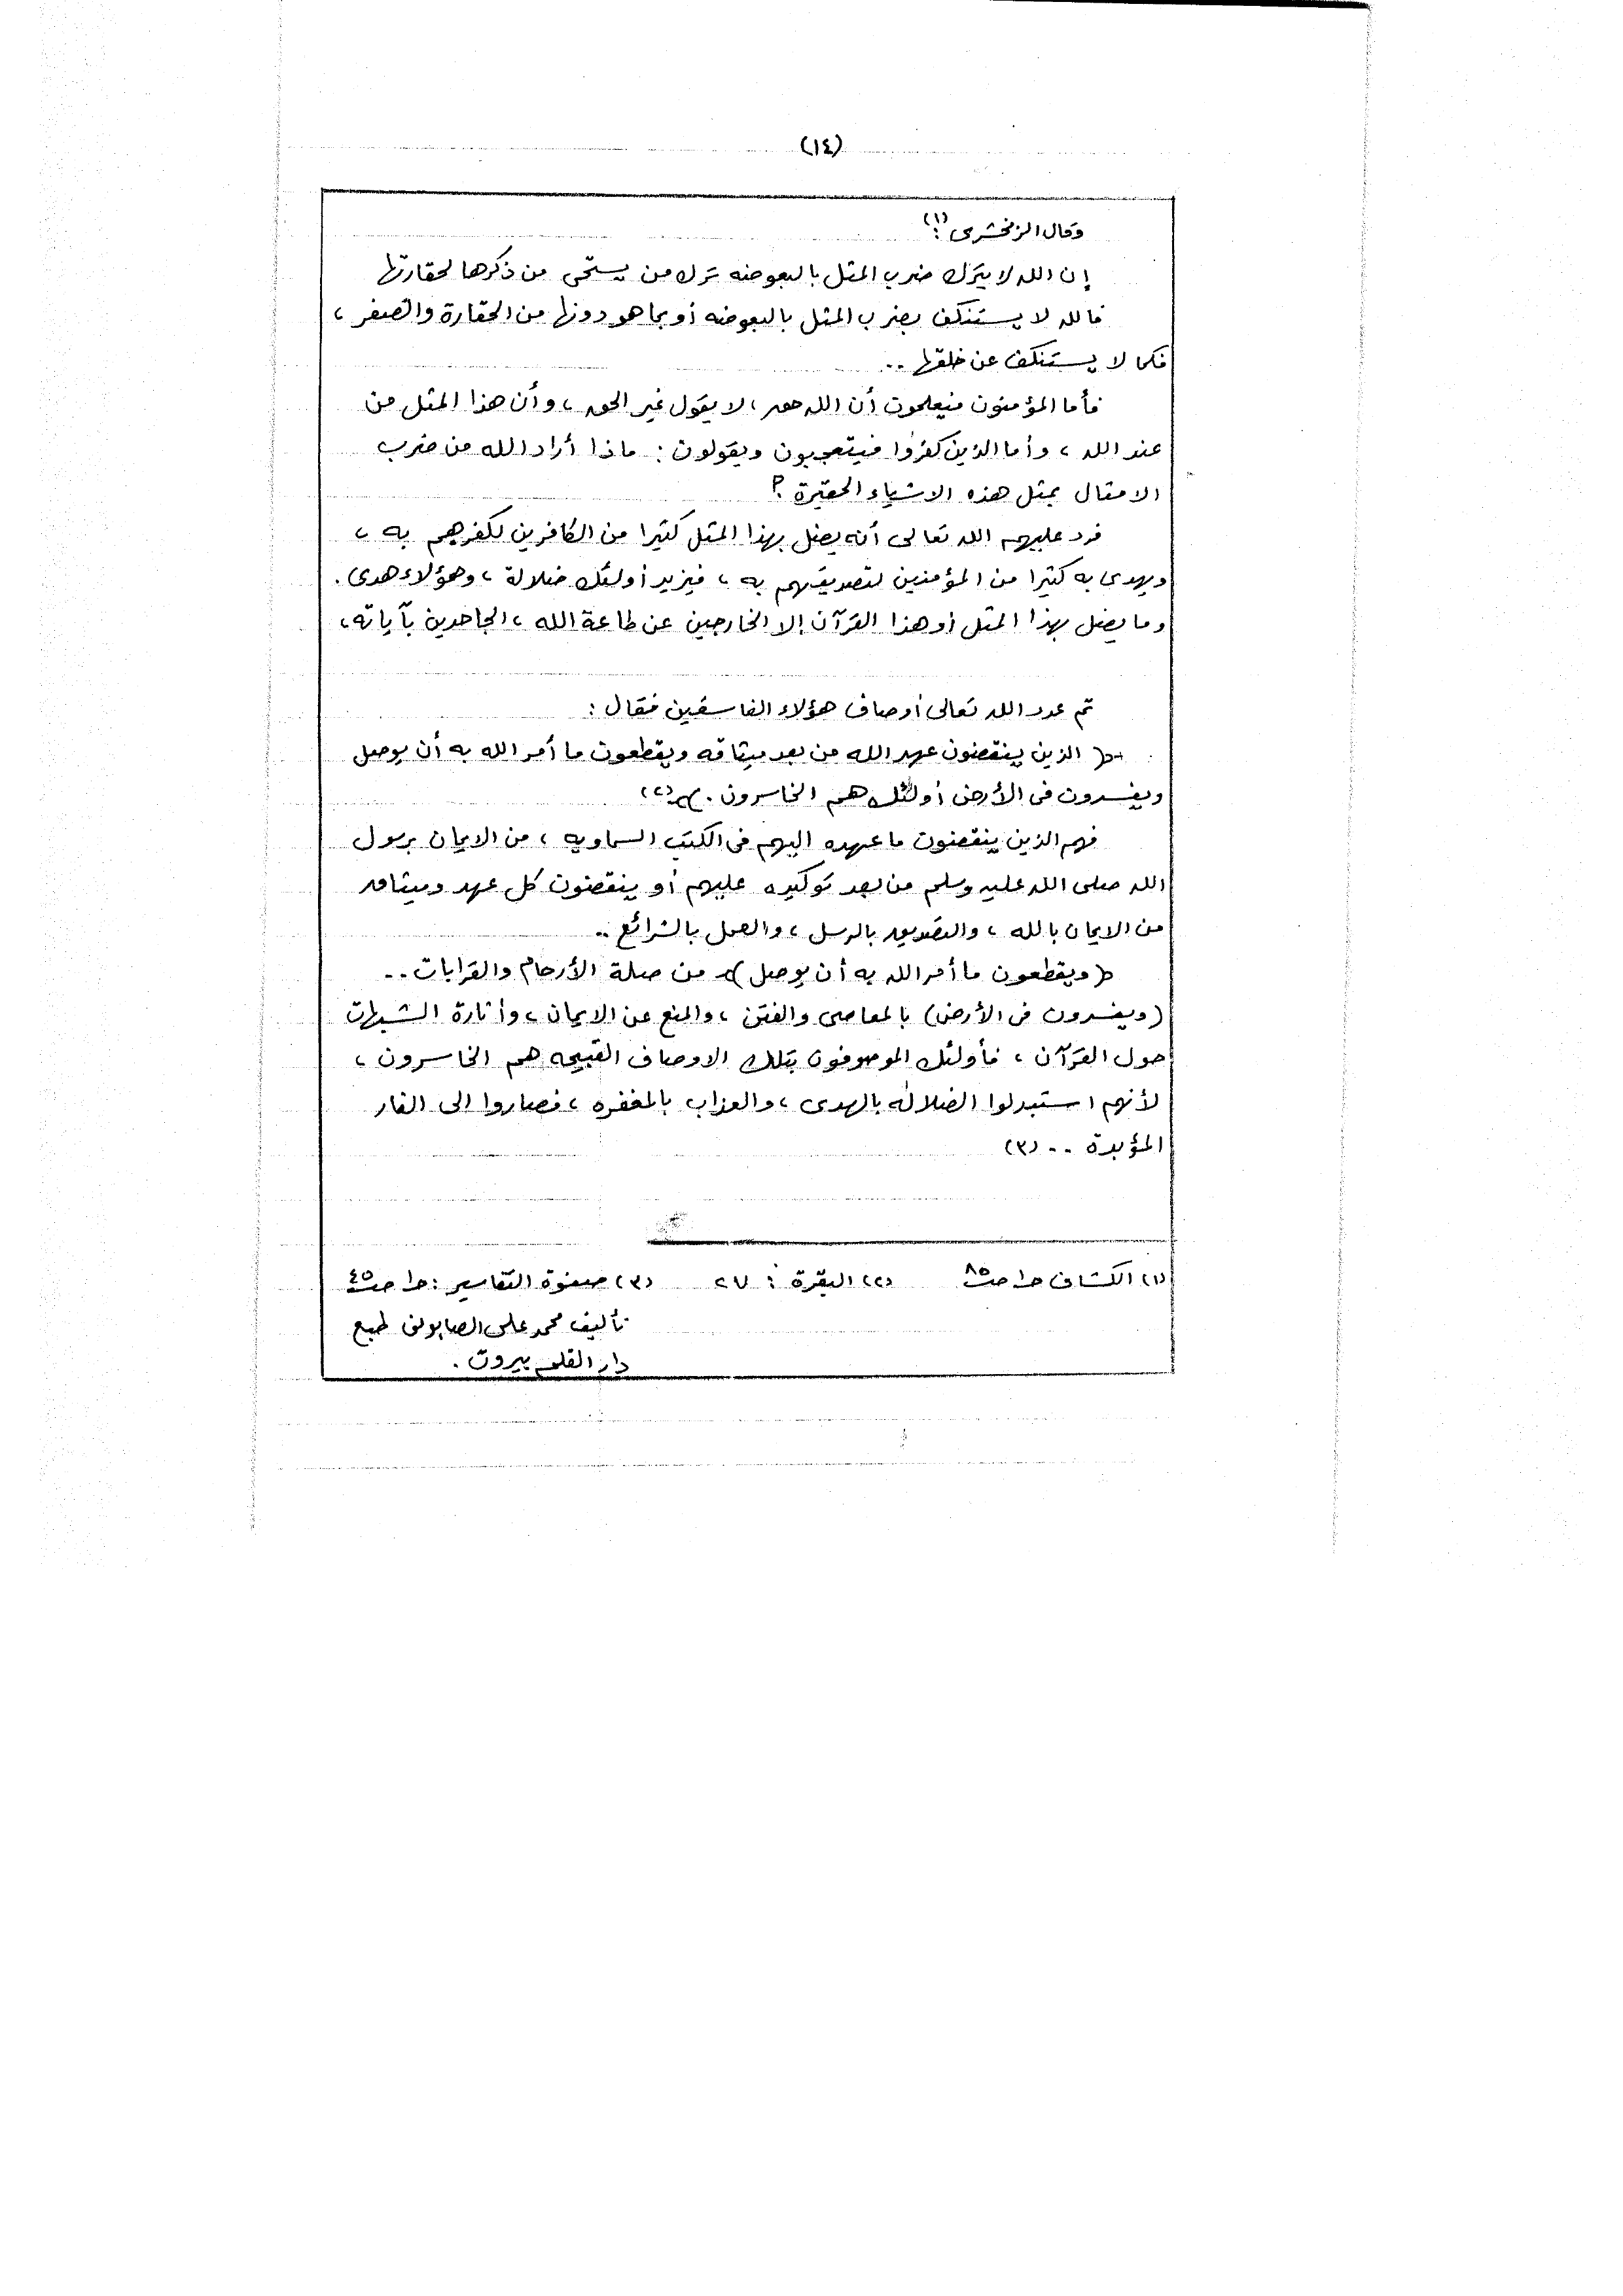 (١٤)
وقال الزمخشرى (١) :
إن الله لا يترك ضرب المثل بالبعوضه ترك من يستحى من ذكرها لحقارتها
فالله لا يستنكف بضرب المثل بالبعوضه أو بما هو دونها من الحقارة والصغر ،
فكما لا يستنكف عن خلقها ..
فأما المؤمنون فيعلمون أن الله حق ، لا يقول غير الحق ، وأن هذا المثل من
عند الله ، وأما الذين كفروا فيتعجبون ويقولون : ماذا أراد الله من ضرب
الامثال بمثل هذه الاشياء الحقيرة ؟
فرد عليهم الله تعالى أنه يضل بهذا المثل كثيرا من الكافرين لكفرهم به ،
ويهدى به كثيرا من المؤمنين لتصديقهم به ، فيزيد أولئك ضلالة ، وهؤلاء هدى .
وما يضل بهذا المثل أو هذا القرآن إلا الخارجين عن طاعة الله ، الجاحدين بآياته ،
ثم عدد الله تعالى أوصاف هؤلاء الفاسقين فقال :
( الذين ينقضون عهد الله من بعد ميثاقه ويقطعون ما أمر الله به أن يوصل
ويفسدون فى الأرض أولئك هم الخاسرون . ) (٢)
فهم الذين ينقضون ما عهده اليهم فى الكتب السماويه ، من الايمان برسول
الله صلى الله عليه وسلم من بعد توكيده عليهم أو ينقضون كل عهد وميثاق
من الايمان بالله ، والتصديق بالرسل ، والعمل بالشرائع ..
( ويقطعون ما أمر الله به أن يوصل ) من صلة الأرحام والقرابات ..
( ويفسدون فى الأرض ) بالمعاصى والفتن ، والمنع عن الايمان ، وأثارة الشبهات
حول القرآن ، فأولئك الموصوفون بتلك الاوصاف القبيحه هم الخاسرون ،
لأنهم استبدلوا الضلاله بالهدى ، والعذاب بالمغفره ، فصاروا الى النار
المؤبدة .. (٣)
(١) الكشاف حـ١ صـ٨٥ (٢) البقرة : ٢٧ (٣) صفوة التفاسير : حـ١ صـ٤٥
تأليف محمد على الصابونى طبع
دار القلم بيروت .